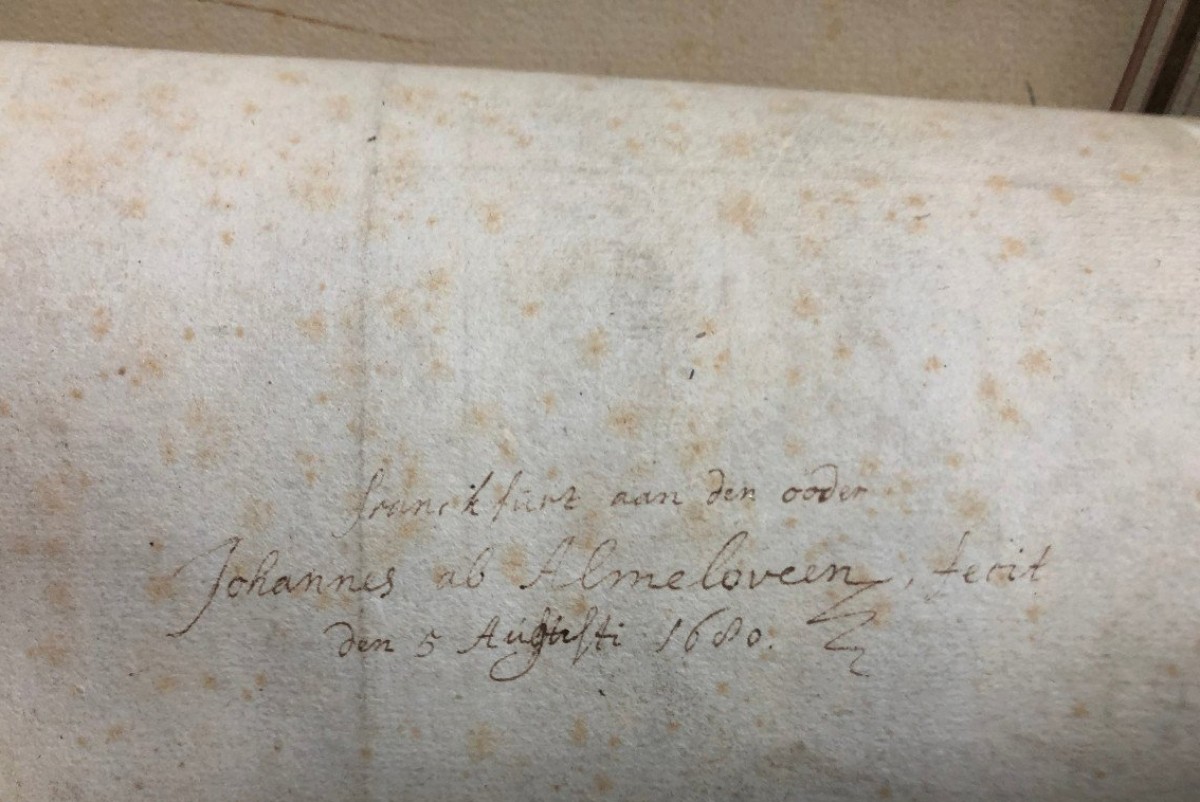 franckfürt aan den ooder
Johannes ab Almeloveen, fecit
den 5 Aúgústi 1680.